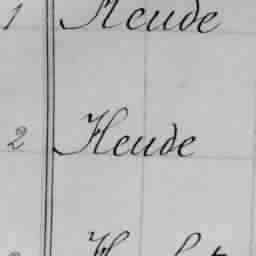 1 Heude
2 Heude